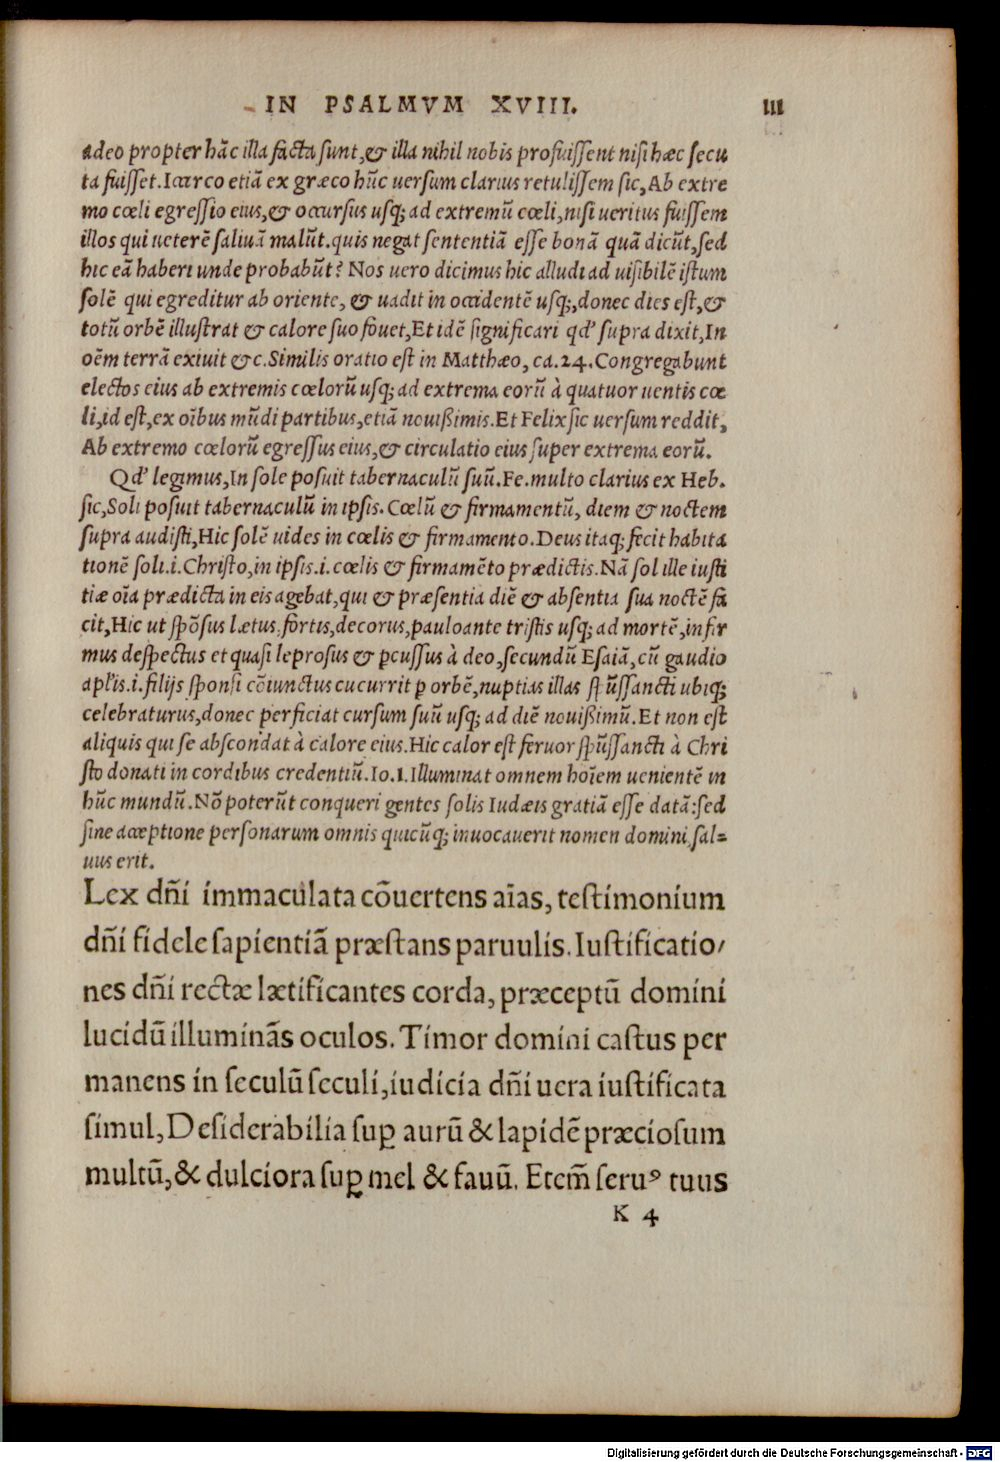 IN PSALMVM XVIII. 111
adeo propter hãc illa facta sunt,& illa nihil nobis profuissent nisi hæc secu
ta fuisset. Iccirco etiã ex græco hũc uersum clarius retulissem sic, Ab extre
mo cœli egressio eius,& occursus usq; ad extremũ cœli, nisi ueritus fuissem
illos qui ueterẽ saliuã malũt. quis negat sententiã esse bonã quã dicũt, sed
hic eã haberi unde probabũt? Nos uero dicimus hic alludi ad uisibilẽ istum
solẽ qui egreditur ab oriente, & uadit in occidentẽ usq;, donec dies est,&
totũ orbẽ illustrat & calore suo fouet, Et idẽ significari qd' supra dixit, In
oẽm terrã exiuit &c. Similis oratio est in Matthæo, ca. 24. Congregabunt
electos eius ab extremis cœlorũ usq; ad extrema eorũ à quatuor uentis cœ
li, id est, ex oĩbus mũdi partibus, etiã nouißimis. Et Felix sic uersum reddit,
Ab extremo cœlorũ egressus eius,& circulatio eius super extrema eorũ.
Qd' legimus, In sole posuit tabernaculũ suũ. Fe. multo clarius ex Heb.
sic, Soli posuit tabernaculũ in ipsis. Cœlũ & firmamentũ, diem & noctem
supra audisti, Hic solẽ uides in cœlis & firmamento. Deus itaq; fecit habita
tionẽ soli .i. Christo, in ipsis .i. cœlis & firmamẽto prædictis. Nã sol ille iusti
tiæ oĩa prædicta in eis agebat, qui & præsentia diẽ & absentia sua noctẽ fa
cit, Hic ut spõsus lætus, fortis, decorus, pauloante tristis usq; ad mortẽ, infir
mus despectus et quasi leprosus & ꝑcussus à deo, secundũ Esaiã, cũ gaudio
apl'is .i. filijs sponsi cõiunctus cucurrit ꝑ orbẽ, nuptias illas sp̃ussancti ubiq;
celebraturus, donec perficiat cursum suũ usq; ad diẽ nouißimũ. Et non est
aliquis qui se abscondat à calore eius. Hic calor est feruor sp̃ussancti à Chri
sto donati in cordibus credentiũ. Io. 1. Illuminat omnem hoĩem uenientẽ in
hũc mundũ. Nõ poterũt conqueri gentes solis Iudæis gratiã esse datã: sed
sine acceptione personarum omnis quicũq; inuocauerit nomen domini, sal=
uus erit.
Lex dñi immaculata cõuertens aĩas, testimonium
dñi fidele sapientiã præstans paruulis. Iustificatio/
nes dñi rectæ lætificantes corda, præceptũ domini
lucidũ illuminãs oculos. Timor domini castus per
manens in seculũ seculi, iudicia dñi uera iustificata
simul, Desiderabilia suꝑ aurũ & lapidẽ præciosum
multũ, & dulciora suꝑ mel & fauũ. Etem̃ seruꝰ tuus
K 4
Digitalisierung gefördert durch die Deutsche Forschungsgemeinschaft - DFG